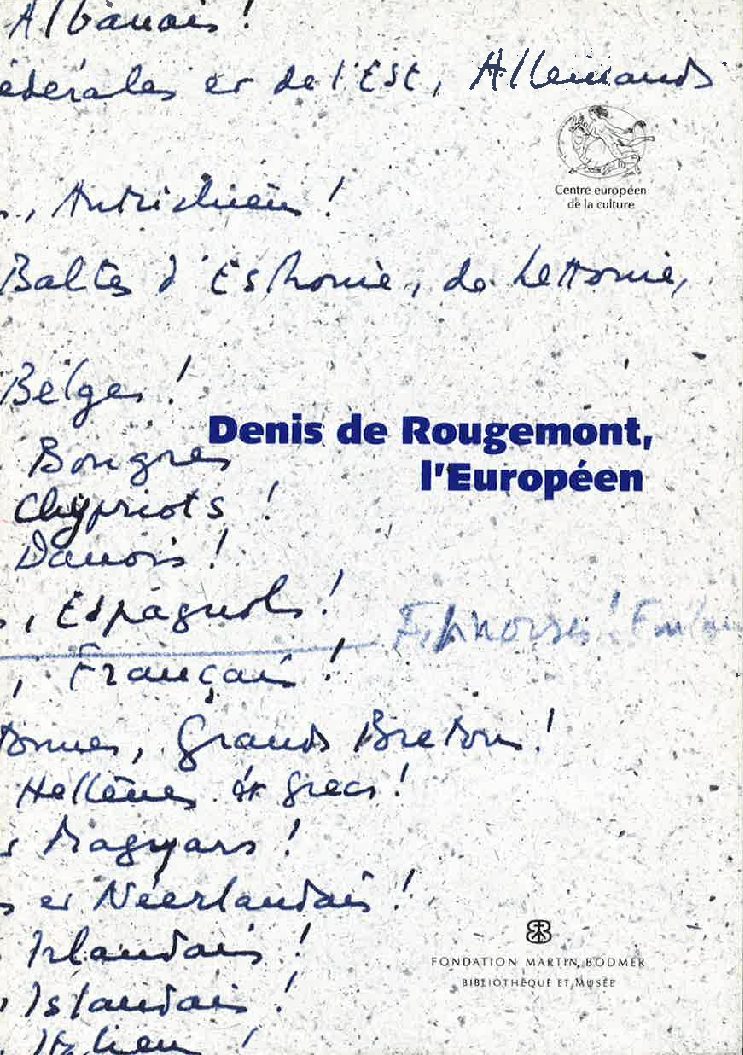 Albanais !
édérales et de l'Est, Allemands
Centre européen
de la culture
, Autrichiens !
Baltes d'Esthonie, de Lettonie,
Belges !
Denis de Rougemont,
l'Européen
Bougres
Chypriots !
Danois !
, Espagnols !
, Français !
tonnes, Grands Bretons !
Hellènes et grecs !
Magyars !
et Néerlandais !
Irlandais !
, Islandais !
FONDATION MARTIN BODMER
BIBLIOTHÈQUE ET MUSÉE